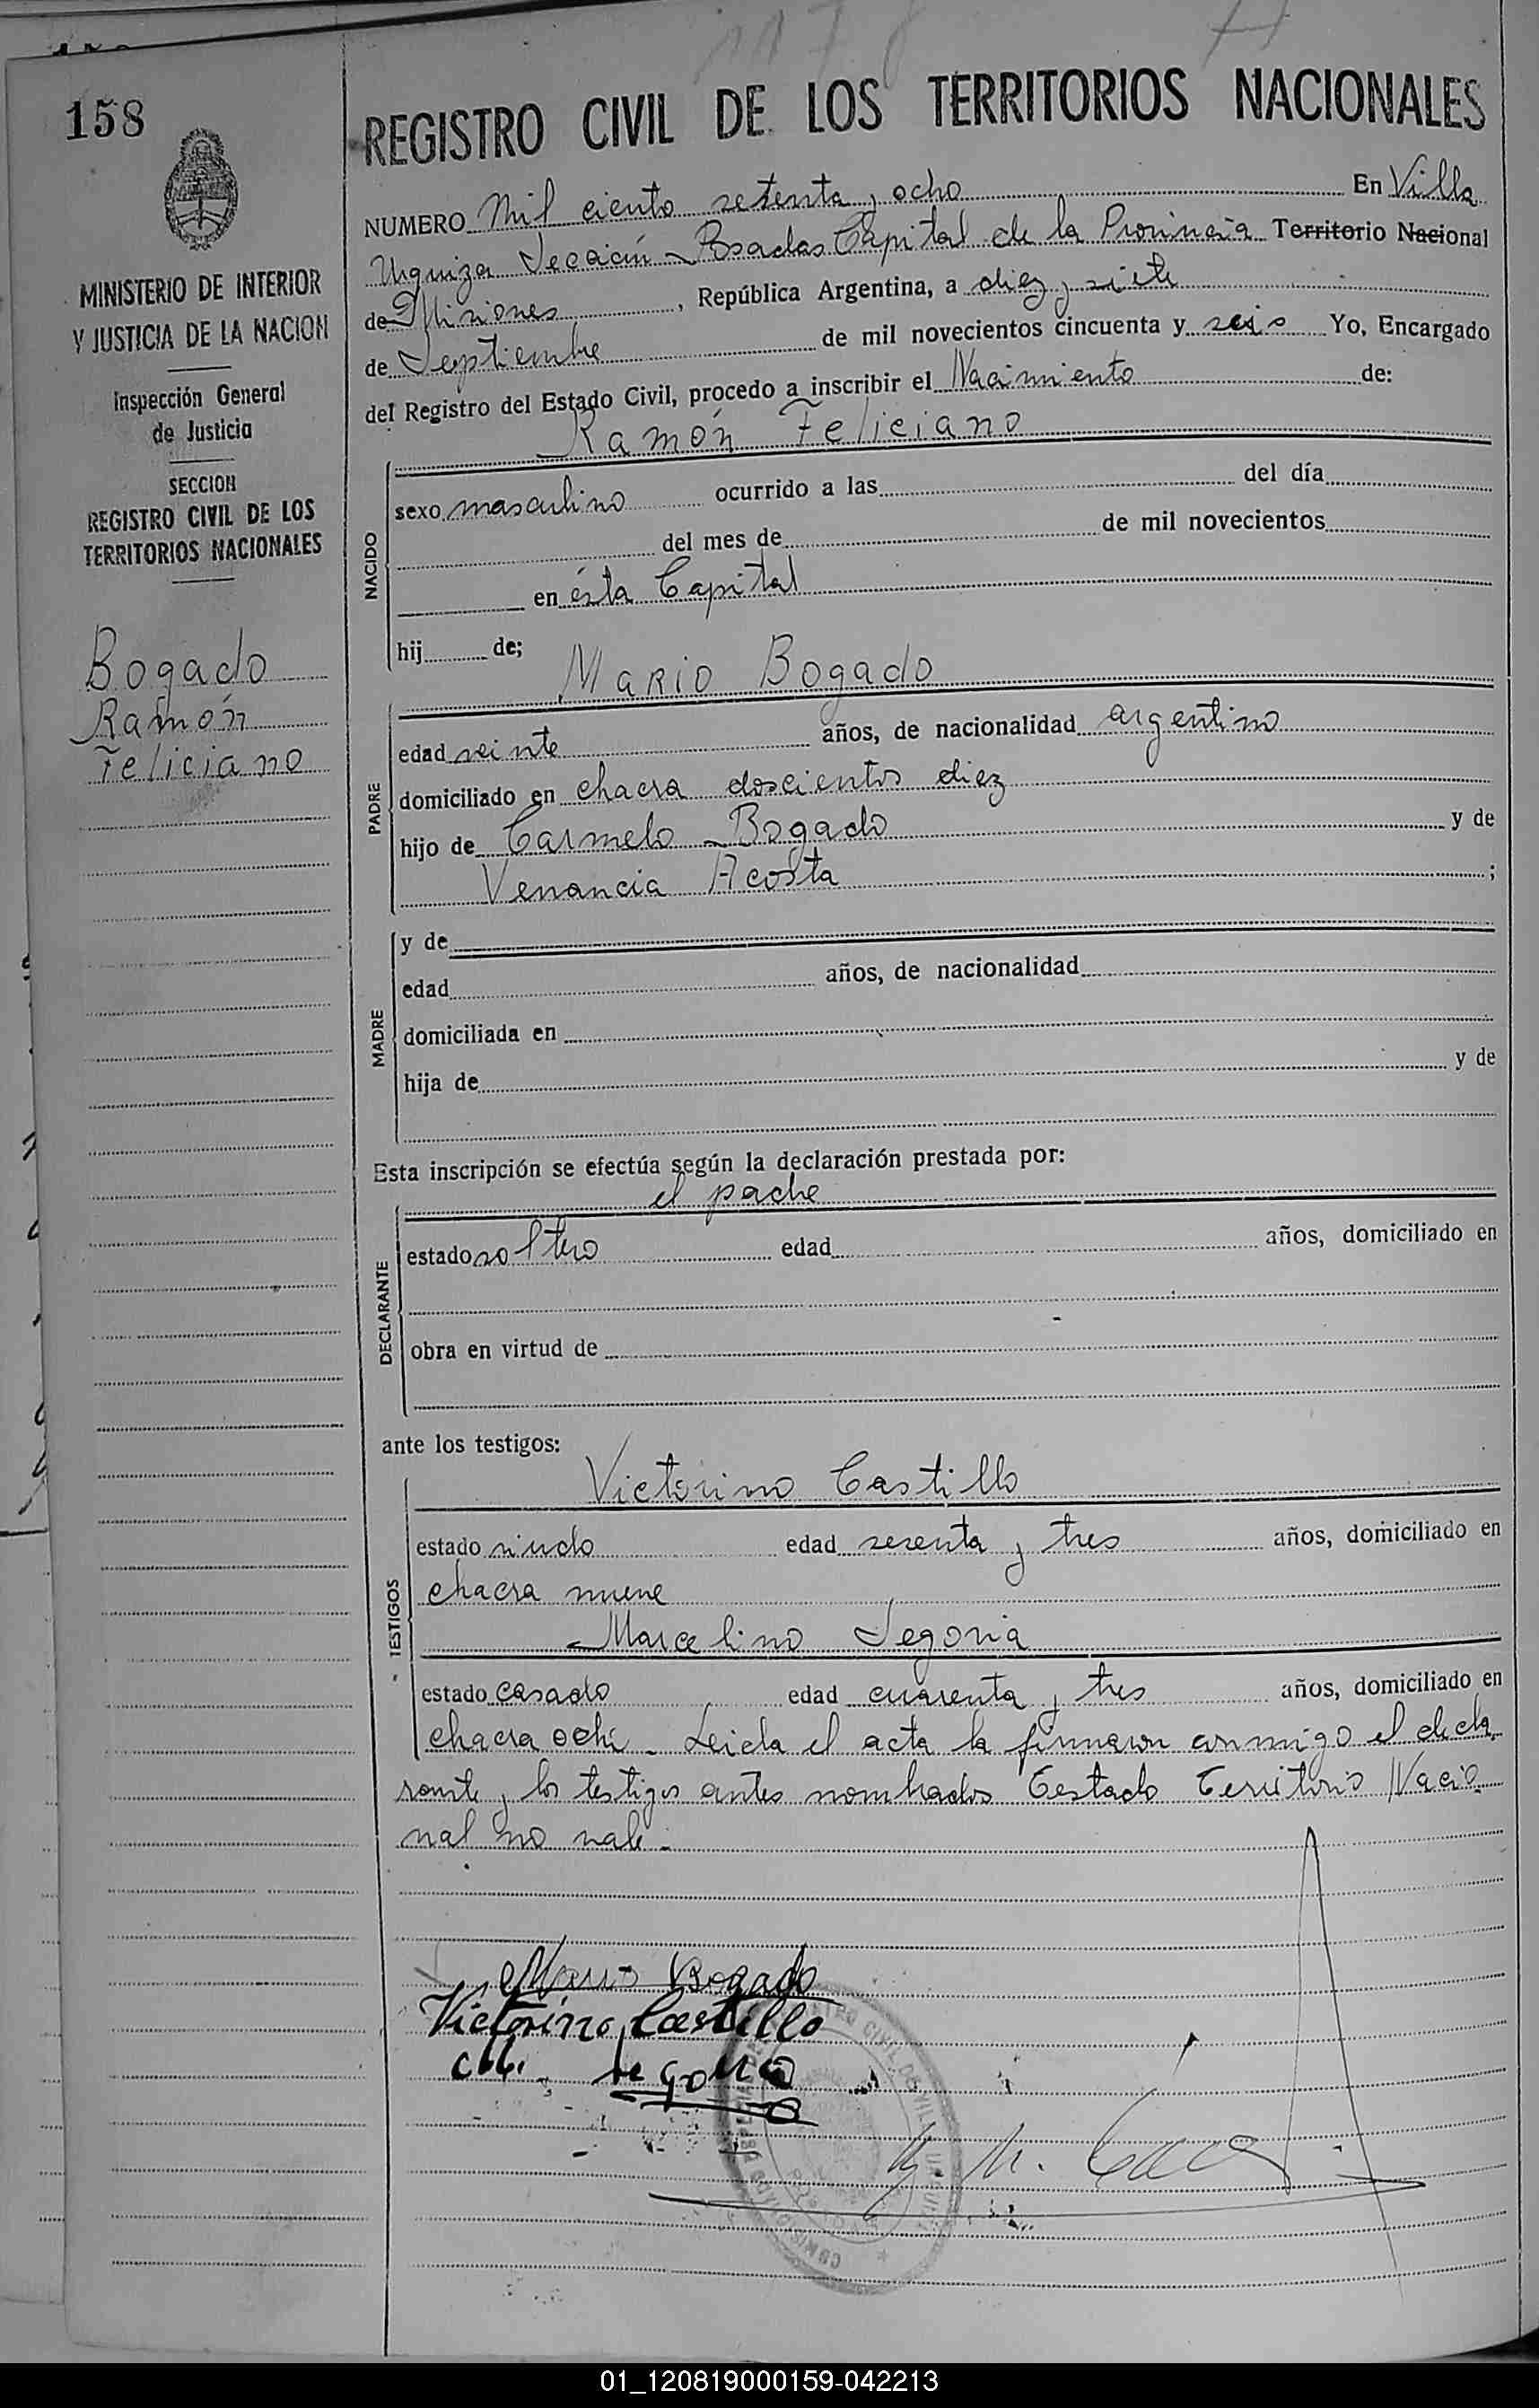 1178
158
REGISTRO CIVIL DE LOS TERRITORIOS NACIONALES
NUMERO Mil ciento setenta y ocho En Villa
Urquiza Sección Posadas Capital de la Provincia Territorio Nacional
de Misiones, República Argentina, a diez y siete
de Septiembre de mil novecientos cincuenta y seis Yo, Encargado
del Registro del Estado Civil, procedo a inscribir el Nacimiento de:
Ramón Feliciano
MINISTERIO DE INTERIOR
Y JUSTICIA DE LA NACION
Inspección General
de Justicia
SECCION
REGISTRO CIVIL DE LOS
TERRITORIOS NACIONALES
Bogado
Ramón
Feliciano
NACIDO
sexo masculino ocurrido a las del día
del mes de de mil novecientos
en ésta Capital
hij de;
Mario Bogado
PADRE
edad veinte años, de nacionalidad argentino
domiciliado en chacra doscientos diez
hijo de Carmelo Bogado y de
Venancia Acosta ;
MADRE
y de
edad años, de nacionalidad
domiciliada en
hija de y de
Esta inscripción se efectúa según la declaración prestada por:
el padre
DECLARANTE
estado soltero edad años, domiciliado en
obra en virtud de
ante los testigos:
Victorino Castillo
TESTIGOS
estado viudo edad sesenta y tres años, domiciliado en
chacra nueve
Marcelino Segovia
estado casado edad cuarenta y tres años, domiciliado en
chacra ocho. Leida el acta la firmaron conmigo el decla
rante y los testigos antes nombrados Testado Territorio Nacio
nal no vale.
Mario Bogado
Victorino Castillo
M. Segovia
01_120819000159-042213